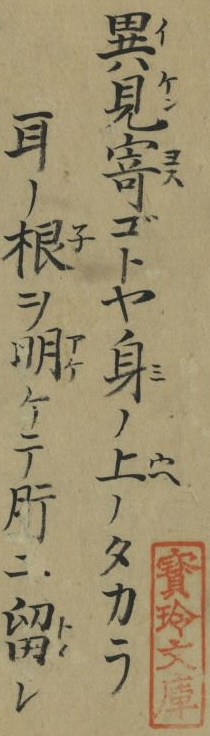 寶玲文庫
イケン ヨス ミ ウヘ
異見寄ゴトヤ身ノ上ノタカラ
子 アケ
耳ノ根ヲ明ケテ所ニ留レ